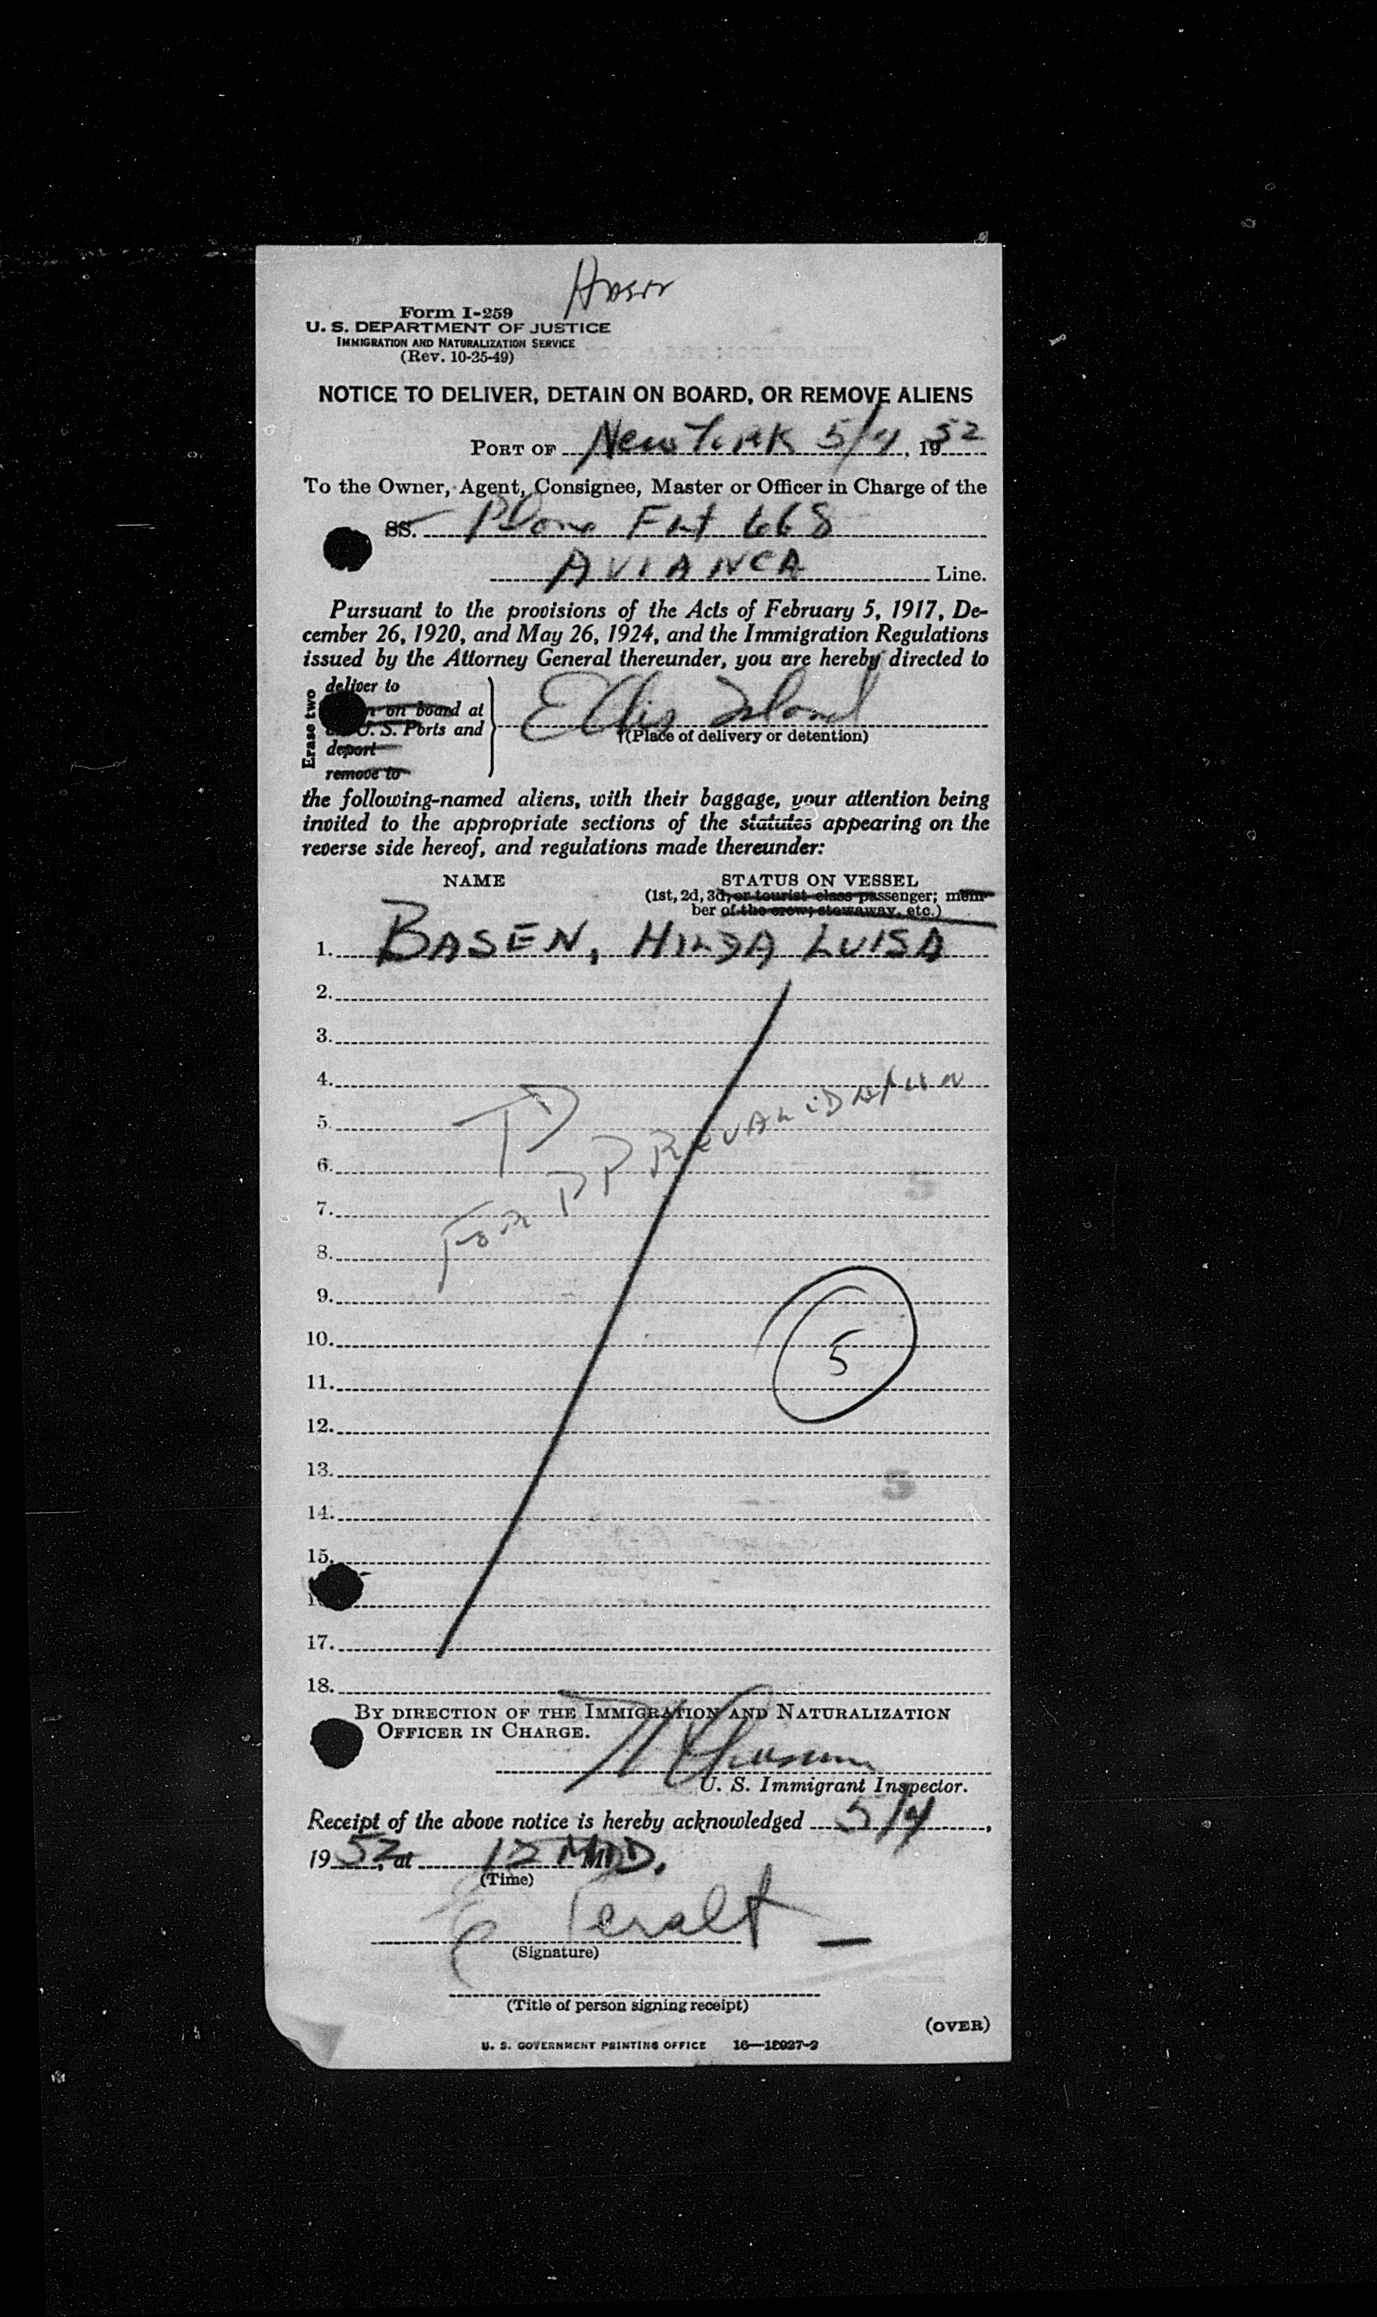 Form I-259
U. S. DEPARTMENT OF JUSTICE
IMMIGRATION AND NATURALIZATION SERVICE
(Rev. 10-25-49)
NOTICE TO DELIVER, DETAIN ON BOARD, OR REMOVE ALIENS
PORT OF New York 5/4, 1952
To the Owner, Agent, Consignee, Master or Officer in Charge of the
SS. Plane Flt 668
AVIANCA Line.
Pursuant to the provisions of the Acts of February 5, 1917, De-
cember 26, 1920, and May 26, 1924, and the Immigration Regulations
issued by the Attorney General thereunder, you are hereby directed to
Erase two
deliver to
on board at
U. S. Ports and
deport
remove to
Ellis Island
†(Place of delivery or detention)
the following-named aliens, with their baggage, your attention being
invited to the appropriate sections of the statutes appearing on the
reverse side hereof, and regulations made thereunder:
NAME STATUS ON VESSEL
(1st, 2d, 3d, or tourist class passenger; mem-
ber of the crew; stowaway, etc.)
1. BASEN, HILDA LUISA
2.
3.
4.
5. TD
6. FOR PP REVALIDATION
7.
8.
9.
10. 5
11.
12.
13. 5
14.
15.
17.
18.
BY DIRECTION OF THE IMMIGRATION AND NATURALIZATION
OFFICER IN CHARGE.
U. S. Immigrant Inspector.
Receipt of the above notice is hereby acknowledged 5/4,
1952, at 12 MDD.
(Time)
E Peralt
(Signature)
(Title of person signing receipt)
(OVER)
U. S. GOVERNMENT PRINTING OFFICE 16—18027-2